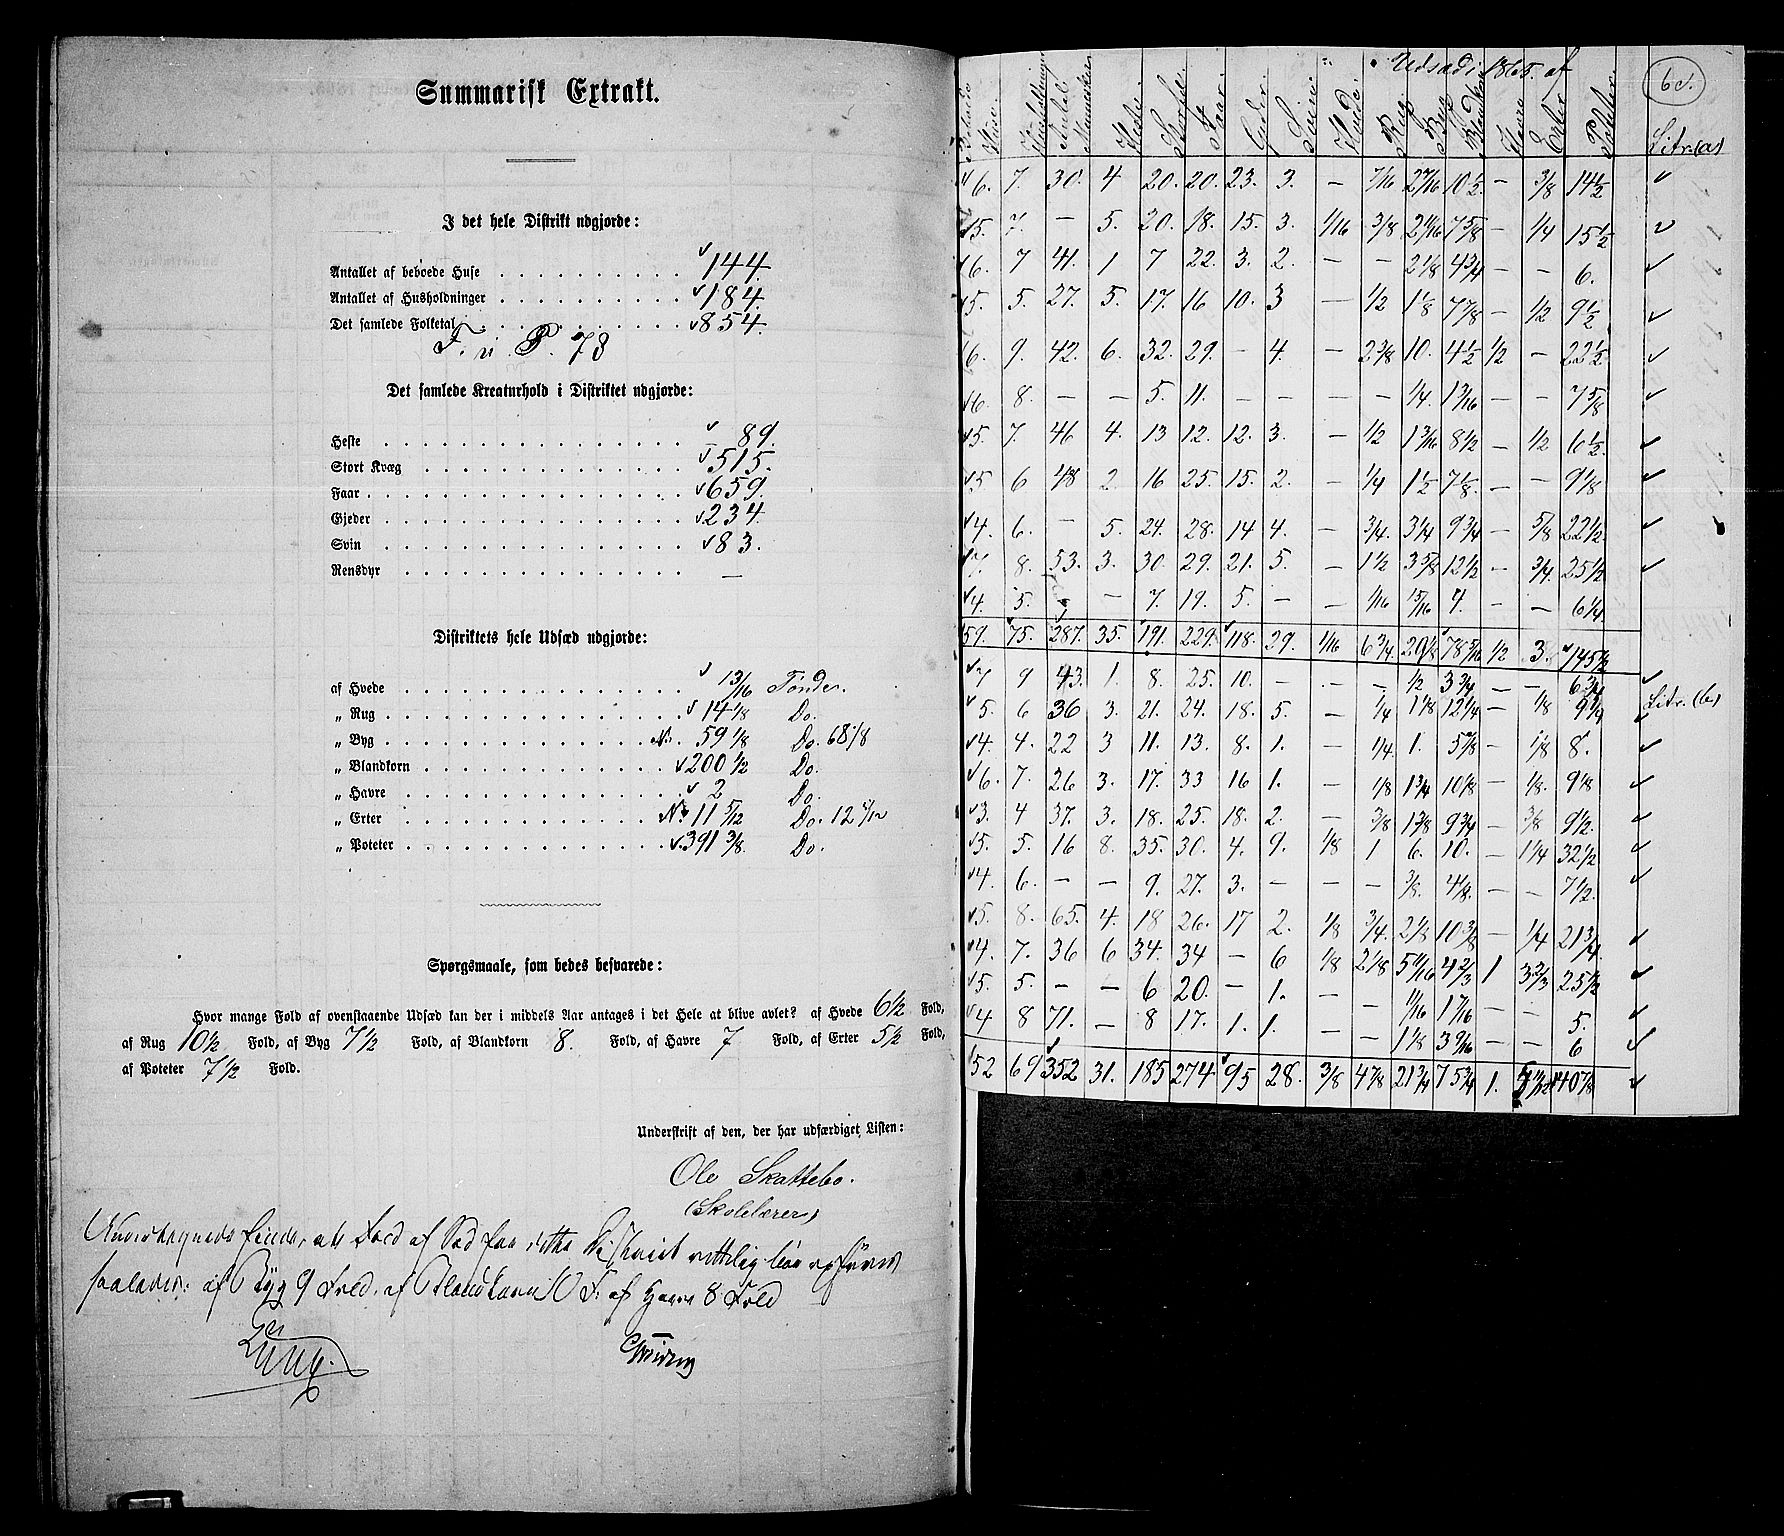 Summarisk Extrakt.
I det hele Distrikt udgjorde:
Antallet af beboede Huse . . . . . . . . . . 144
Antallet af Husholdninger . . . . . . . . . . 184.
Det samlede Folketal . . . . . . . . . . 854.
F. n. P. 78
Det samlede Kreaturhold i Distriktet udgjorde:
Heste . . . . . . . . . . 89.
Stort Kvæg . . . . . . . . . . 515.
Faar . . . . . . . . . . 659.
Gjeder . . . . . . . . . . 234.
Svin . . . . . . . . . . 83.
Rensdyr . . . . . . . . . . —
Distriktets hele Udsæd udgjorde:
af Hvede . . . . . . . . . . 13/16 Tønder.
„ Rug . . . . . . . . . . 14 1/8 Do.
„ Byg . . . . . . . . . . 59 1/8 Do. 68 1/8
„ Blandkorn . . . . . . . . . . 200 1/2 Do.
„ Havre . . . . . . . . . . 2 Do.
„ Erter . . . . . . . . . . 11 5/12 Do. 12 5/12
„ Poteter . . . . . . . . . . 391 3/8. Do.
Spørgsmaale, som bedes besvarede:
Hvor mange Fold af ovenstaaende Udsæd kan der i middels Aar antages i det Hele at blive avlet? af Hvede 6 1/2 Fold,
af Rug 10 1/2 Fold, af Byg 7 1/2 Fold, af Blandkorn 8. Fold, af Havre 7 Fold, af Erter 5 1/2 Fold,
af Poteter 7 1/2 Fold.
Underskrift af den, der har udfærdiget Listen:
Ole Skattebo.
(Skolelærer)
Undertegnede finder, at Fold af Sæd for dette Distrikt rettelig bør opføres
saaledes: af Byg 9 Fold, af Blandkorn 10 F. af Havre 8 Fold
Udsæd i 1865 af
Beboede Huse. Husholdninger Antal Mennesker Heste. Storfæ. Faar. Gjeder. Sviin. Hvede. Rug. Byg. Blandkorn Havre Erter Poteter. Litr. (a)
6. 7. 30. 4 20. 20. 23. 3. — 7/16 2 7/16 10 1/2 — 3/8 14 1/2
5. 7. — 5. 20. 18. 15. 3. 1/16 3/8 2 1/16 7 5/8 — 1/4 15 1/2
6. 7 41. 1 7 22. 3. 2. — — 2 1/8 4 3/4 — — 6.
5. 5. 27. 5. 17. 16 10. 3 — 1/2 1 1/8 7 7/8 — 1/2 9 1/2
6. 9. 42. 6. 32. 29. — 4. — 2 3/8 10. 4 1/2 1/2 — 22 1/2
6. 8. — — 5. 11. — — — — 1/4. 1 3/16 — — 7 5/8
5. 7. 46 4. 13 12. 12. 3. — 1/2 1 3/16 8 1/2 — 1/2 6 1/2.
5 6 48 2 16 25. 15. 2. — 1/4 1 1/2 7 1/8. — — 9 1/8
4. 6. — 5. 21. 28. 14 4. — 3/4. 3 1/4 9 3/4 — 5/8 22 1/2.
7. 8. 53. 3. 30. 29. 21. 5. — 1 1/2 3 5/8 12 1/2 — 3/4. 25 1/2
4. 5. — 7. 19. 5. — — 1/16 15/16 4. — — 6 1/4.
59. 75. 287. 35. 191. 229. 118. 29. 1/16 6 3/4. 29 1/8 78 5/16 1/2 3 145 1/2
7 9 43. 1. 8. 25. 10. — — — 1/2 3 3/4 — — 6 3/4
5. 6 36 3. 21. 24. 18. 5. — 1/4 1 1/8 12 1/4 — 1/8 9 1/4 Litr. (b)
4. 4. 22 3 11. 13. 8. 1. — 1/4. 1. 5 7/8 — 1/8 8.
6. 7. 26 3. 17. 33 16 1. — 1/8 1 3/4 10 1/8 — 1/8. 9 1/8
3. 4 37. 3. 18. 25. 18. 2. — 3/8 1 3/8 9 3/4 — 3/8 9 1/2.
5. 5. 16 8. 35. 30. 4. 9. 1/8 1 6. 10. — 1 1/4 32 1/2
4. 6. — — 9. 27. 3. — — — 3/8. 4 1/8. — — 7 1/2.
5. 8. 65. 4. 18 26. 17 2. 1/8 3/4. 2 1/8 10 3/8 — 1/4 21 3/4
4. 7. 36 6 34. 34 — 6 1/8 2 1/8 5 11/16 4 2/3 1 3 2/3 25 1/2
5. 5. — — 6 20. — 1. — — 11/16 1 7/16 — — 5.
4 8 71. — 8 17. 1. 1. — — 1 1/8 3 9/16 — — 6
52 69 352 31. 185 274 95 28. 3/8 4 7/8 21 3/4 75 3/4 1. 140 7/8